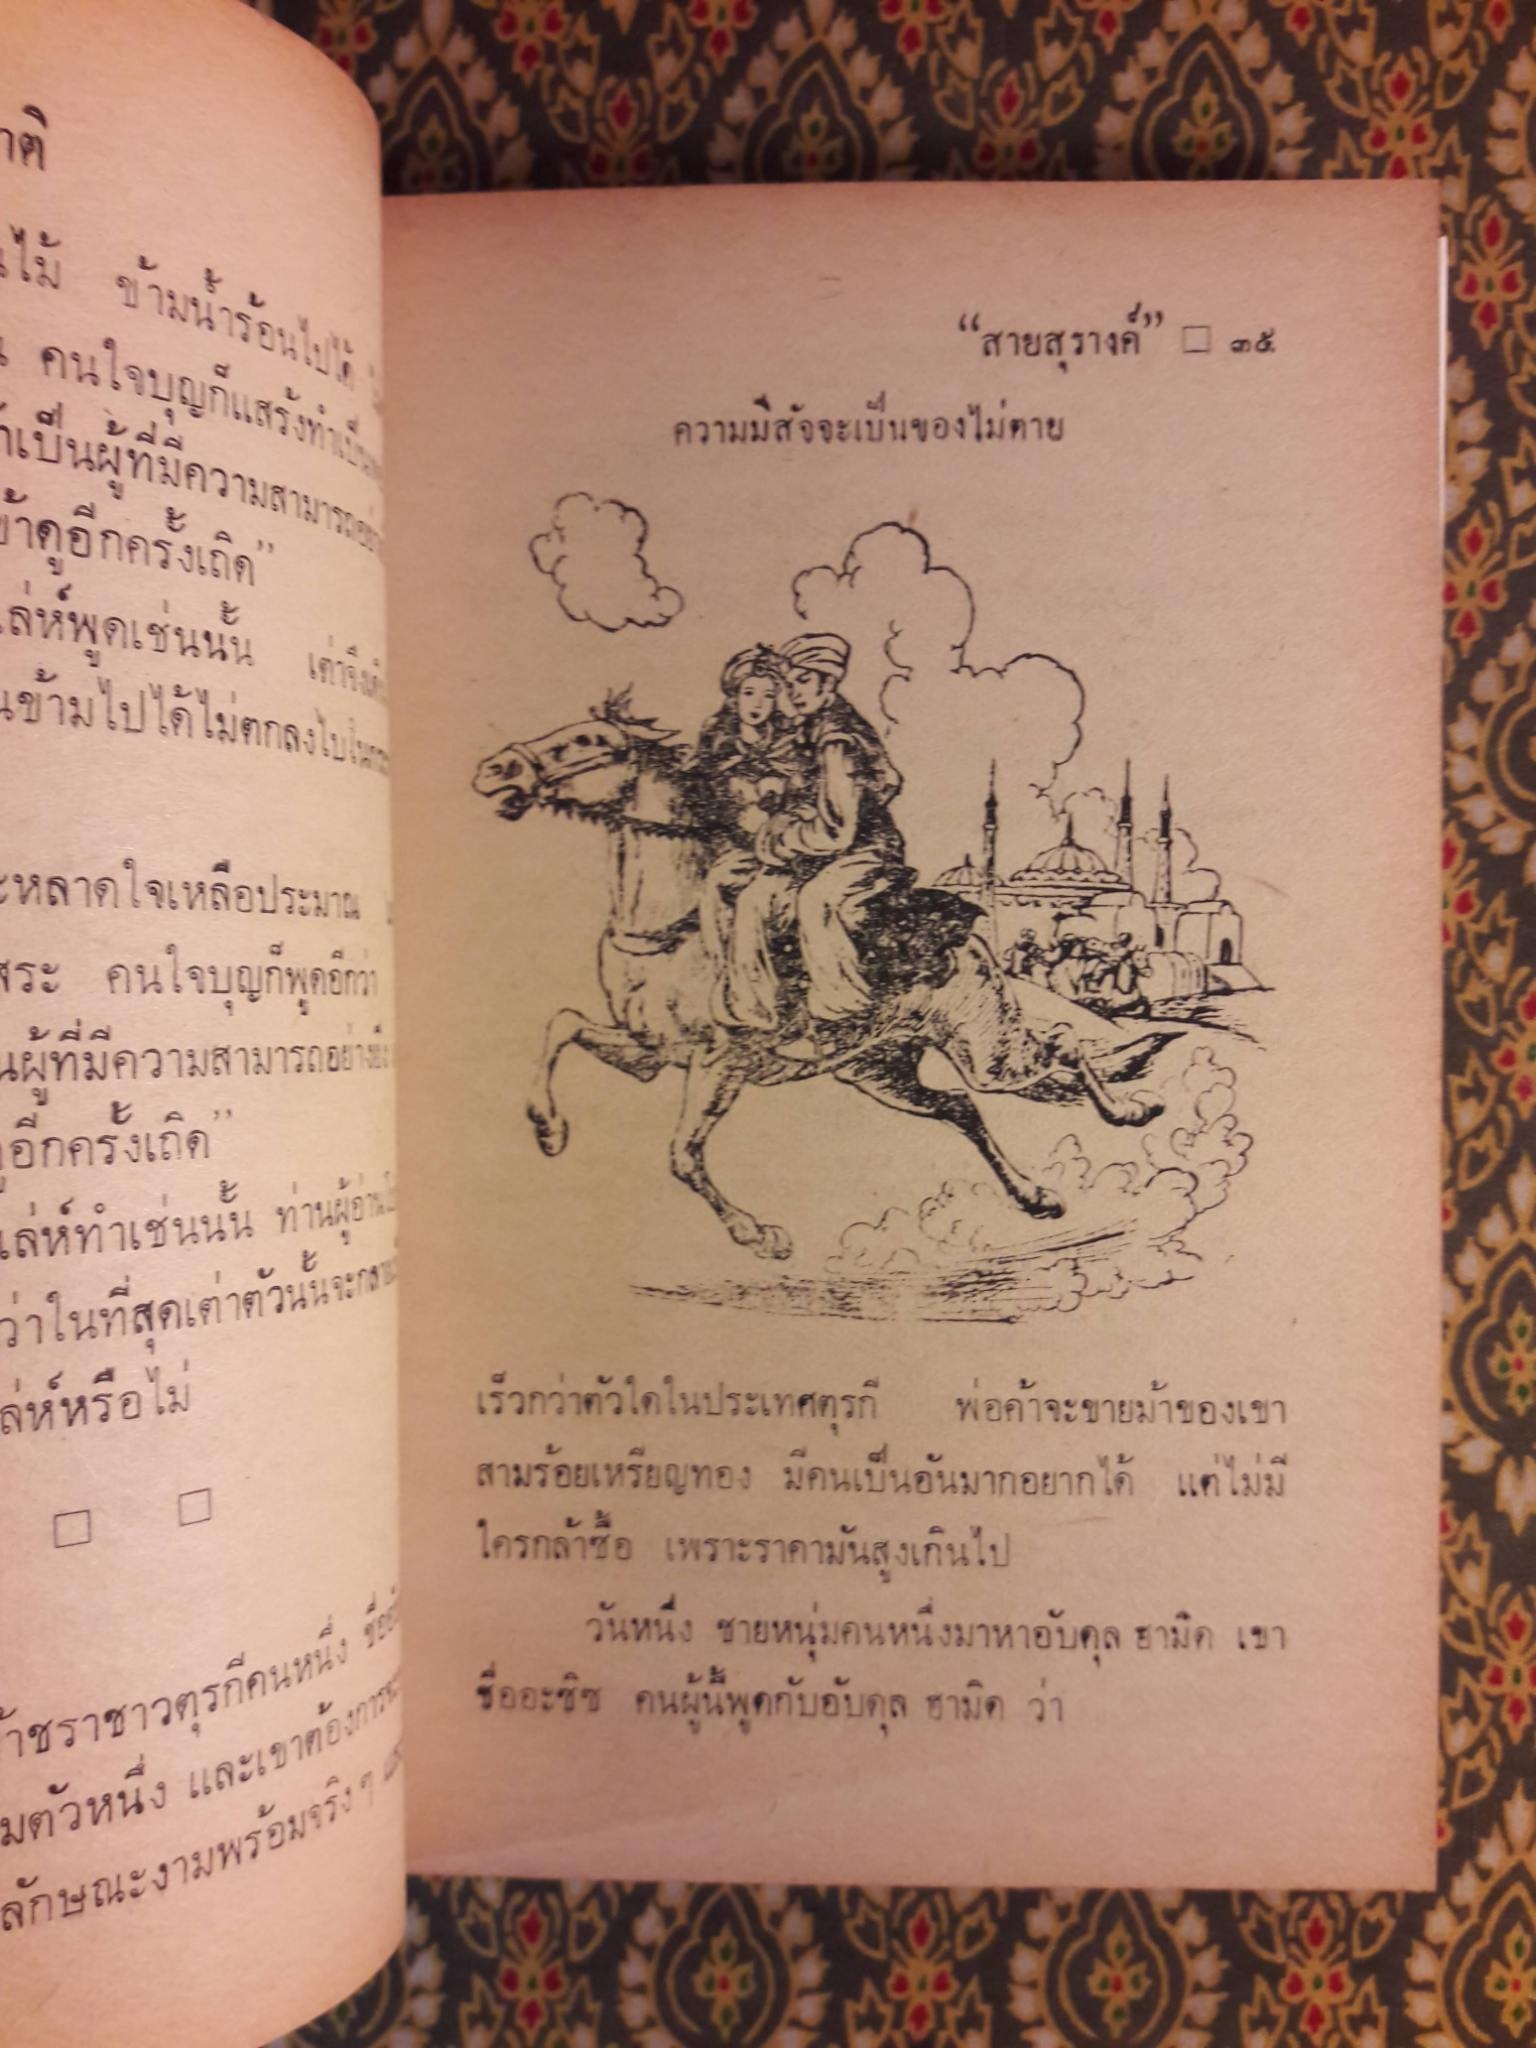 าติ
ไม้ ข้ามน้ำร้อนไปได้
คนใจบุญก็แสร้งทำเป็น
เป็นผู้ที่มีความสามารถอย่าง
ข้าดูอีกครั้งเถิด”
เล่ห์พูดเช่นนั้น เต่าจึง
ข้ามไปได้ไม่ตกลงไปใน
ะหลาดใจเหลือประมาณ
สระ คนใจบุญก็พูดอีกว่า
นผู้ที่มีความสามารถอย่าง
ดูอีกครั้งเถิด”
เล่ห์ทำเช่นนั้น ท่านผู้อ่าน
ว่าในที่สุดเต่าตัวนั้นจะกลาย
ล่ห์หรือไม่
□ □
ชราชาวตุรกีคนหนึ่ง ชื่อ
มตัวหนึ่ง และเขาต้องการ
ลักษณะงามพร้อมจริง ๆ
“สายสุรางค์” □ ๓๕
ความมีสัจจะเป็นของไม่ตาย
เร็วกว่าตัวใดในประเทศตุรกี พ่อค้าจะขายม้าของเขา
สามร้อยเหรียญทอง มีคนเป็นอันมากอยากได้ แต่ไม่มี
ใครกล้าซื้อ เพราะราคามันสูงเกินไป
วันหนึ่ง ชายหนุ่มคนหนึ่งมาหาอับดุล ฮามิด เขา
ชื่ออะซิซ คนผู้นี้พูดกับอับดุล ฮามิด ว่า